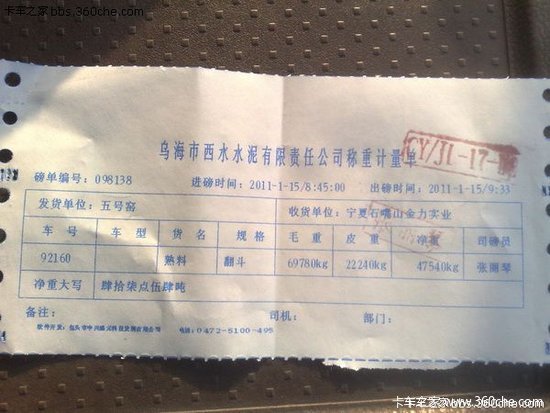 卡车之家bbs.360che.com
乌海市西水水泥有限责任公司称重计量单
CY/JL-17-
磅单编号：098138 进磅时间：2011-1-15/8:45:00 出磅时间：2011-1-15/9:33
发货单位：五号窑 收货单位：宁夏石嘴山金力实业
车 号 车 型 货 名 规 格 毛 重 皮 重 净 重 司磅员
92160 熟料 翻斗 69780kg 22240kg 47540kg 张丽琴
净重大写 肆拾柒点伍肆吨
备注： 司机： 部门：
软件开发：包头市中兴 有限公司 电话：0472-5100-495
卡车之家 www.360che.com